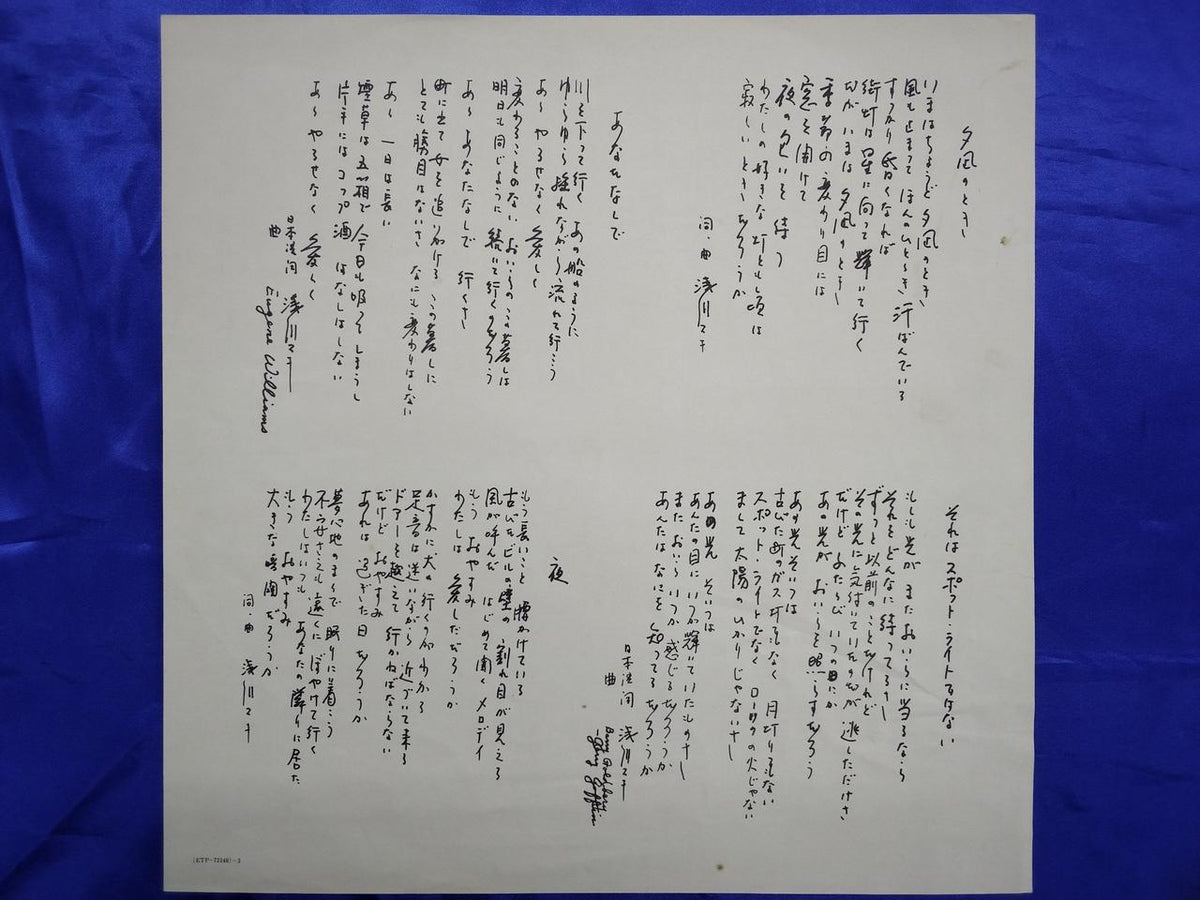 夕凪のとき
いまはちょうど 夕凪のとき
風も止まって ほんのひととき 汗ばんでいる
すっかり昏くなれば
街灯は星に向って 輝いて行く
だが いまは 夕凪のとき
季節の変わり目には
窓を開けて
夜の匂いを 待つ
わたしの好きな 灯ともし頃は
寂しいときだろうか
詞・曲 浅川マキ
あなたなしで
川を下って行く あの船のように
ゆらゆら揺れながら 流れて行こう
あゝ やるせなく 愛しく
変わることのない おいらのこの暮しは
明日も同じように 続いて行くのだろう
あゝ あなたなしで 行くさ
町に出て 女を追いかける この暮しに
とても勝目はないさ なにも変わりはしない
あゝ 一日は長い
煙草は五箱で 今日も吸ってしまうし
片手には コップ酒 はなしはしない
あゝ やるせなく 愛しく
日本語詞 浅川マキ
曲 Eugene Williams
それはスポット・ライトではない
もしも光が またおいらに当るなら
それをどんなに 待ってるさ
ずっと以前のことだけれど
その光に気付いていたのだが 逃しただけさ
だけど ふたたび いつの日にか
あの光が おいらを照らすだろう
あの光 そいつは
古びた町のガス灯でもなく 月灯りでもない
スポット・ライトでなく ローソクの火じゃない
まして 太陽のひかりじゃないさ
あの光 そいつは
あんたの目に いつか輝いていたものさ
またおいら いつか 感じるだろうか
あんたはなにを 知ってるだろうか
日本語詞 浅川マキ
曲 Barry Goldberg
-Gerry Goffin
夜
もう長いこと 腰かけている
古びたビルの壁の 割れ目が見える
風が呼んだ はじめて聞くメロディ
もう おやすみ
わたしは 愛しただろうか
かすかに犬の行くのがわかる
足音は迷いながら 近づいて来る
ドアーを越えて 行かねばならない
だけど おやすみ
あれは 過ぎた日 だろうか
夢心地のままで 眠りに着こう
不らちささえも 遠くに ぼやけて行く
わたしはいつも あなたの隣りに居た
もう おやすみ
大きな暗闇だろうか
詞・曲 浅川マキ
(ETP-72348)-3